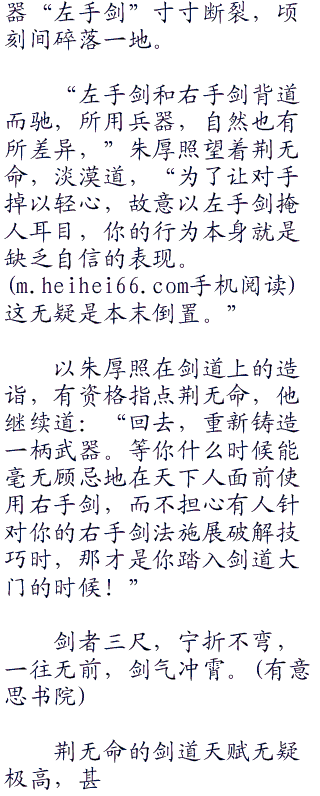 器“左手剑”寸寸断裂，顷
刻间碎落一地。
“左手剑和右手剑背道
而驰，所用兵器，自然也有
所差异，”朱厚照望着荆无
命，淡漠道，“为了让对手
掉以轻心，故意以左手剑掩
人耳目，你的行为本身就是
缺乏自信的表现。
(m.heihei66.com手机阅读)
这无疑是本末倒置。”
以朱厚照在剑道上的造
诣，有资格指点荆无命，他
继续道：“回去，重新铸造
一柄武器。等你什么时候能
毫无顾忌地在天下人面前使
用右手剑，而不担心有人针
对你的右手剑法施展破解技
巧时，那才是你踏入剑道大
门的时候！”
剑者三尺，宁折不弯，
一往无前，剑气冲霄。(有意
思书院)
荆无命的剑道天赋无疑
极高，甚